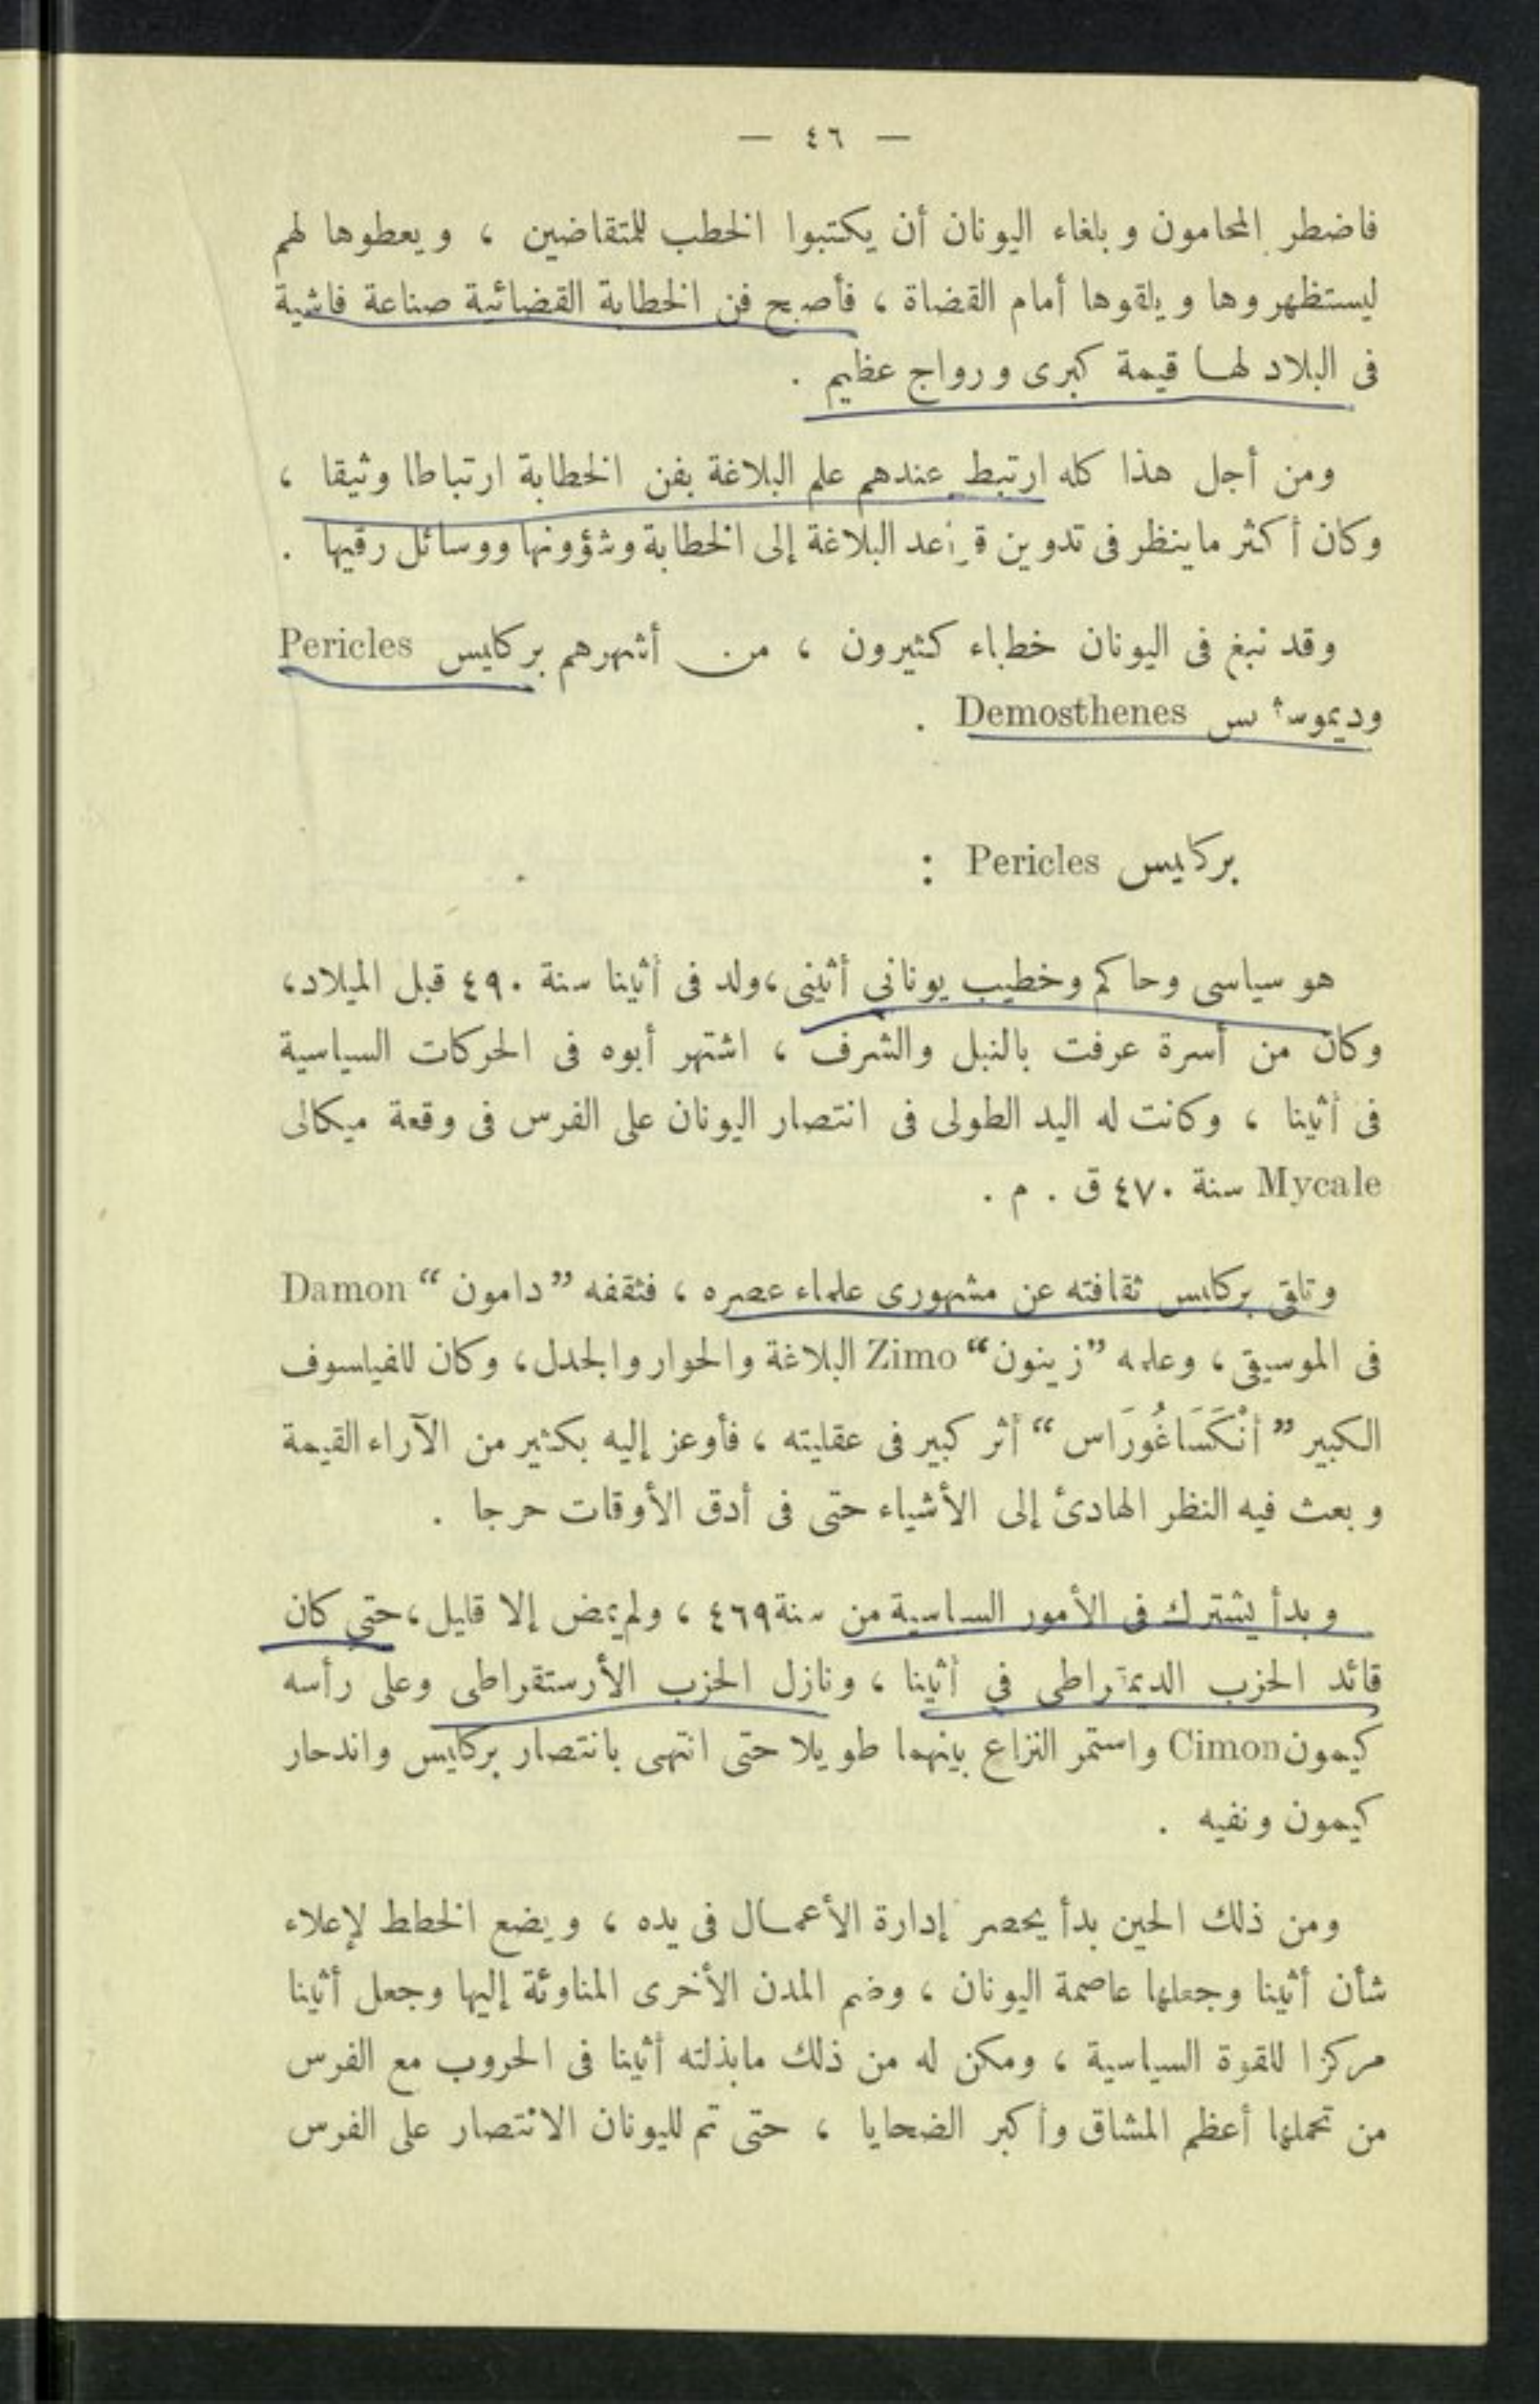 — ٤٦ —
فاضطر المحامون وبلغاء اليونان أن يكتبوا الخطب للمتقاضين ، ويعطوها لهم
ليستظهروها ويلقوها أمام القضاة ، فأصبح فن الخطابة القضائية صناعة فاشية
فى البلاد لها قيمة كبرى ورواج عظيم .
ومن أجل هذا كله ارتبط عندهم علم البلاغة بفن الخطابة ارتباطا وثيقا ،
وكان أكثر ما ينظر فى تدوين قواعد البلاغة إلى الخطابة وشؤونها ووسائل رقيها .
وقد نبغ فى اليونان خطباء كثيرون ، من أشهرهم بركليس Pericles
وديموستنس Demosthenes .
بركليس Pericles :
هو سياسى وحاكم وخطيب يونانى أثينى، ولد فى أثينا سنة ٤٩٠ قبل الميلاد،
وكان من أسرة عرفت بالنبل والشرف ، اشتهر أبوه فى الحركات السياسية
فى أثينا ، وكانت له اليد الطولى فى انتصار اليونان على الفرس فى وقعة ميكالى
Mycale سنة ٤٧٠ ق . م .
وتلقى بركليس ثقافته عن مشهورى علماء عصره ، فثقفه ”دامون“ Damon
فى الموسيقى، وعلمه ”زينون“ Zimo البلاغة والحوار والجدل، وكان للفيلسوف
الكبير ”أنْكَسَاغُورَاس“ أثر كبير فى عقليته ، فأوعز إليه بكثير من الآراء القيمة
وبعث فيه النظر الهادئ إلى الأشياء حتى فى أدق الأوقات حرجا .
وبدأ يشترك فى الأمور السياسية من سنة ٤٦٩ ، ولم يمض إلا قليل، حتى كان
قائد الحزب الديمقراطى في أثينا ، ونازل الحزب الأرستقراطى وعلى رأسه
كيمون Cimon واستمر النزاع بينهما طويلا حتى انتهى بانتصار بركليس واندحار
كيمون ونفيه .
ومن ذلك الحين بدأ يحصر إدارة الأعمال فى يده ، ويضع الخطط لإعلاء
شأن أثينا وجعلها عاصمة اليونان ، وضم المدن الأخرى المناوئة إليها وجعل أثينا
مركزا للقوة السياسية ، ومكن له من ذلك مابذلته أثينا فى الحروب مع الفرس
من تحملها أعظم المشاق وأكبر الضحايا ، حتى تم لليونان الانتصار على الفرس